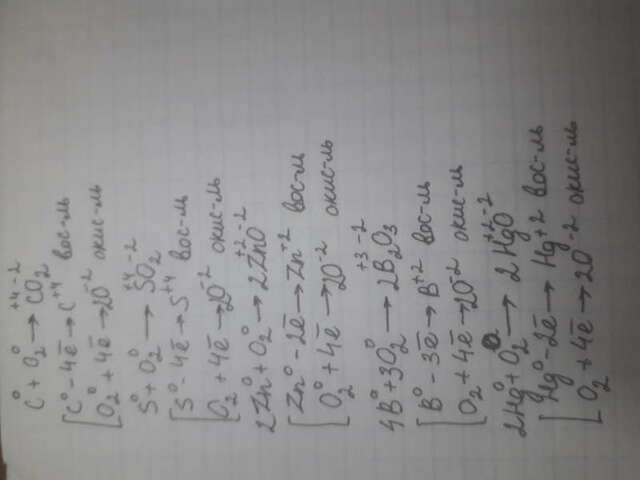 C⁰ + O₂⁰ → C⁺⁴O₂⁻²
C⁰ - 4ē → C⁺⁴ вос-ль
O₂⁰ + 4ē → 2O⁻² окис-ль
S⁰ + O₂⁰ → S⁺⁴O₂⁻²
S⁰ - 4ē → S⁺⁴ вос-ль
O₂⁰ + 4ē → 2O⁻² окис-ль
2Zn⁰ + O₂⁰ → 2Zn⁺²O⁻²
Zn⁰ - 2ē → Zn⁻² вос-ль
O₂⁰ + 4ē → 2O⁻² окис-ль
4B⁰ + 3O₂⁰ → 2B₂⁺³O₃⁻²
B⁰ - 3ē → B⁺² вос-ль
O₂⁰ + 4ē → 2O⁻² окис-ль
2Hg⁰ + O₂⁰ → 2Hg⁺²O⁻²
Hg⁰ - 2ē → Hg⁺² вос-ль
O₂⁰ + 4ē → 2O⁻² окис-ль